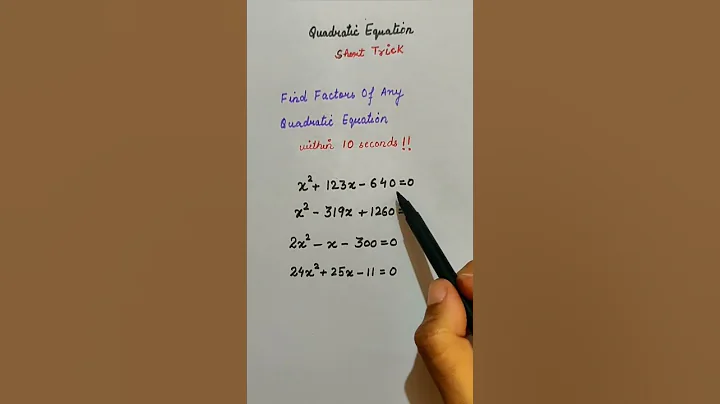 Quadratic Equation
Short Trick
Find Factors Of Any
Quadratic Equation
within 10 seconds!!
x² + 123x - 640 = 0
x² - 319x + 1260 =
2x² - x - 300 = 0
24x² + 25x - 11 = 0